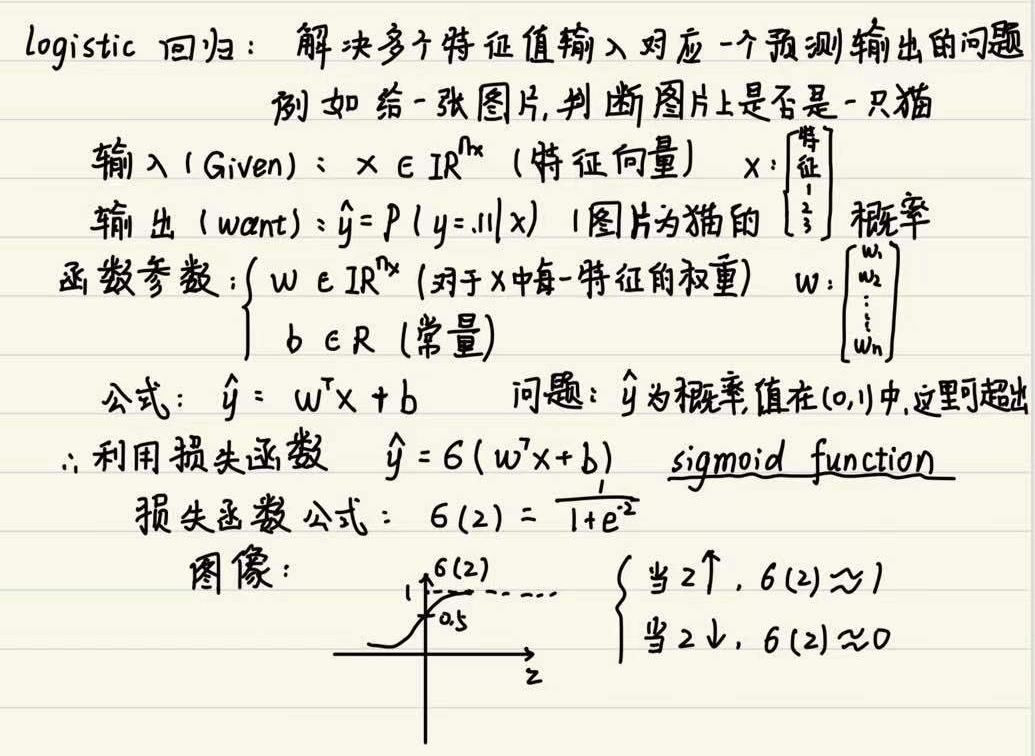 logistic 回归: 解决多个特征值输入对应一个预测输出的问题
例如给一张图片,判断图片上是否是一只猫
输入(Given): x ∈ ℝⁿˣ (特征向量) x: [特征 1 2 3]
输出(want): ŷ = P(y=1|x) (图片为猫的概率
函数参数: { w ∈ ℝⁿˣ (对于x中每一特征的权重) w: [w₁ w₂ ⋮ wₙ]
b ∈ R (常量)
公式: ŷ = wᵀx + b 问题: ŷ为概率,值在(0,1)中,这里可超出
∴ 利用损失函数 ŷ = σ(wᵀx+b) sigmoid function
损失函数公式: σ(z) = 1/(1+e⁻ᶻ)
图像:
σ(z)
1
0.5
z
{ 当z↑, σ(z)≈1
当z↓, σ(z)≈0